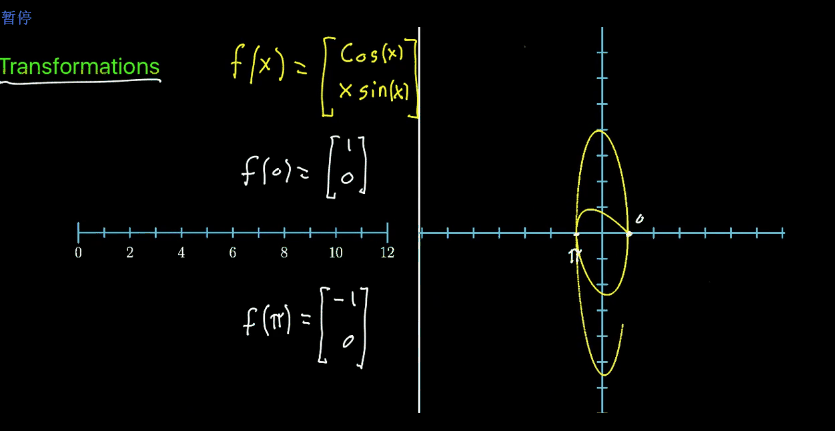 暂停
Transformations
f(x) = [cos(x)
x sin(x)]
f(0) = [1
0]
0 2 4 6 8 10 12
0
π
f(π) = [-1
0]